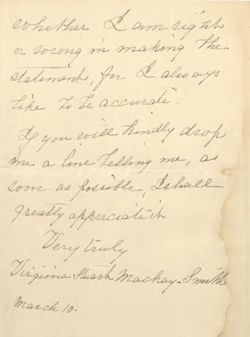 whether I am right
or wrong in making the
statement, for I always
like to be accurate.
If you will kindly drop
me a line telling me, as
soon as possible, I shall
greatly appreciate it
Very truly
Virginia Stuart Mackay-Smith
March 10.